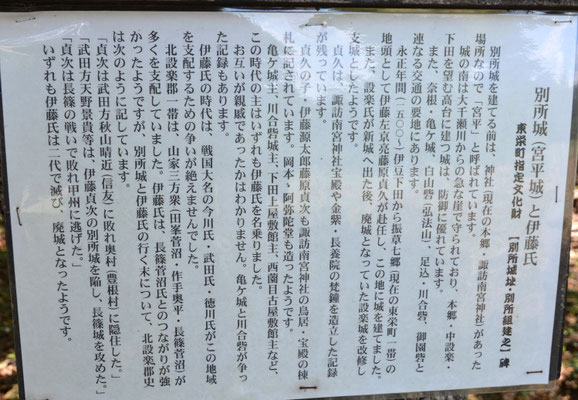 別所城(宮平城)と伊藤氏
東栄町指定文化財 【別所城址・別所組建之】碑
別所城を建てる前は、神社(現在の本郷・諏訪南宮神社)があった
場所なので「宮平」と呼ばれています。
城の南は大千瀬川からの急な崖で守られており、本郷・中設楽・
下田を望む高台に建つ城は、防御に優れています。
また、奈根・亀ケ城、白山砦(弘法山)、足込・川合砦、御園砦と
連なる交通の要地にあります。
永正年間(一五〇〇~)伊豆下田から振草七郷(現在の東栄町一帯)の
地頭として伊藤左京亮藤原貞久が赴任し、この地に城を建てました。
また、設楽氏が新城へ出た後、廃城となっていた設楽城を改修し
支城としたようです。
貞久は、諏訪南宮神社宝殿や金紫・長養院の梵鐘を造立した記録
が残っています。
貞久の子・伊藤源太郎藤原貞次も諏訪南宮神社の鳥居・宝殿の棟
札に記されています。岡本・阿弥陀堂も造ったようです。
亀ケ城主、川合砦城主、下田上屋敷館主、西薗目古屋敷館主など、
この時代の主はいずれも伊藤氏を名乗りました。
お互いが親戚であったかはわかりません。亀ケ城と川合砦が争っ
た記録もあります。
伊藤氏の時代は、戦国大名の今川氏・武田氏・徳川氏がこの地域
を支配するための争いが絶えませんでした。
北設楽郡一帯は、山家三方衆(田峯菅沼・作手奥平・長篠菅沼)が
多くを支配していました。伊藤氏は、長篠菅沼氏とのつながりが強
かったようですが、別所城と伊藤氏の行く末について、北設楽郡史
は次のように記しています。
「貞次は武田方秋山晴近(信友)に敗れ奥村(豊根村)に隠住した。」
「武田方天野景貫等は、伊藤貞次の別所城を陥し、長篠城を攻めた。」
「貞次は長篠の戦いで敗れ甲州に逃げた。」
いずれも伊藤氏は二代で滅び、廃城となったようです。